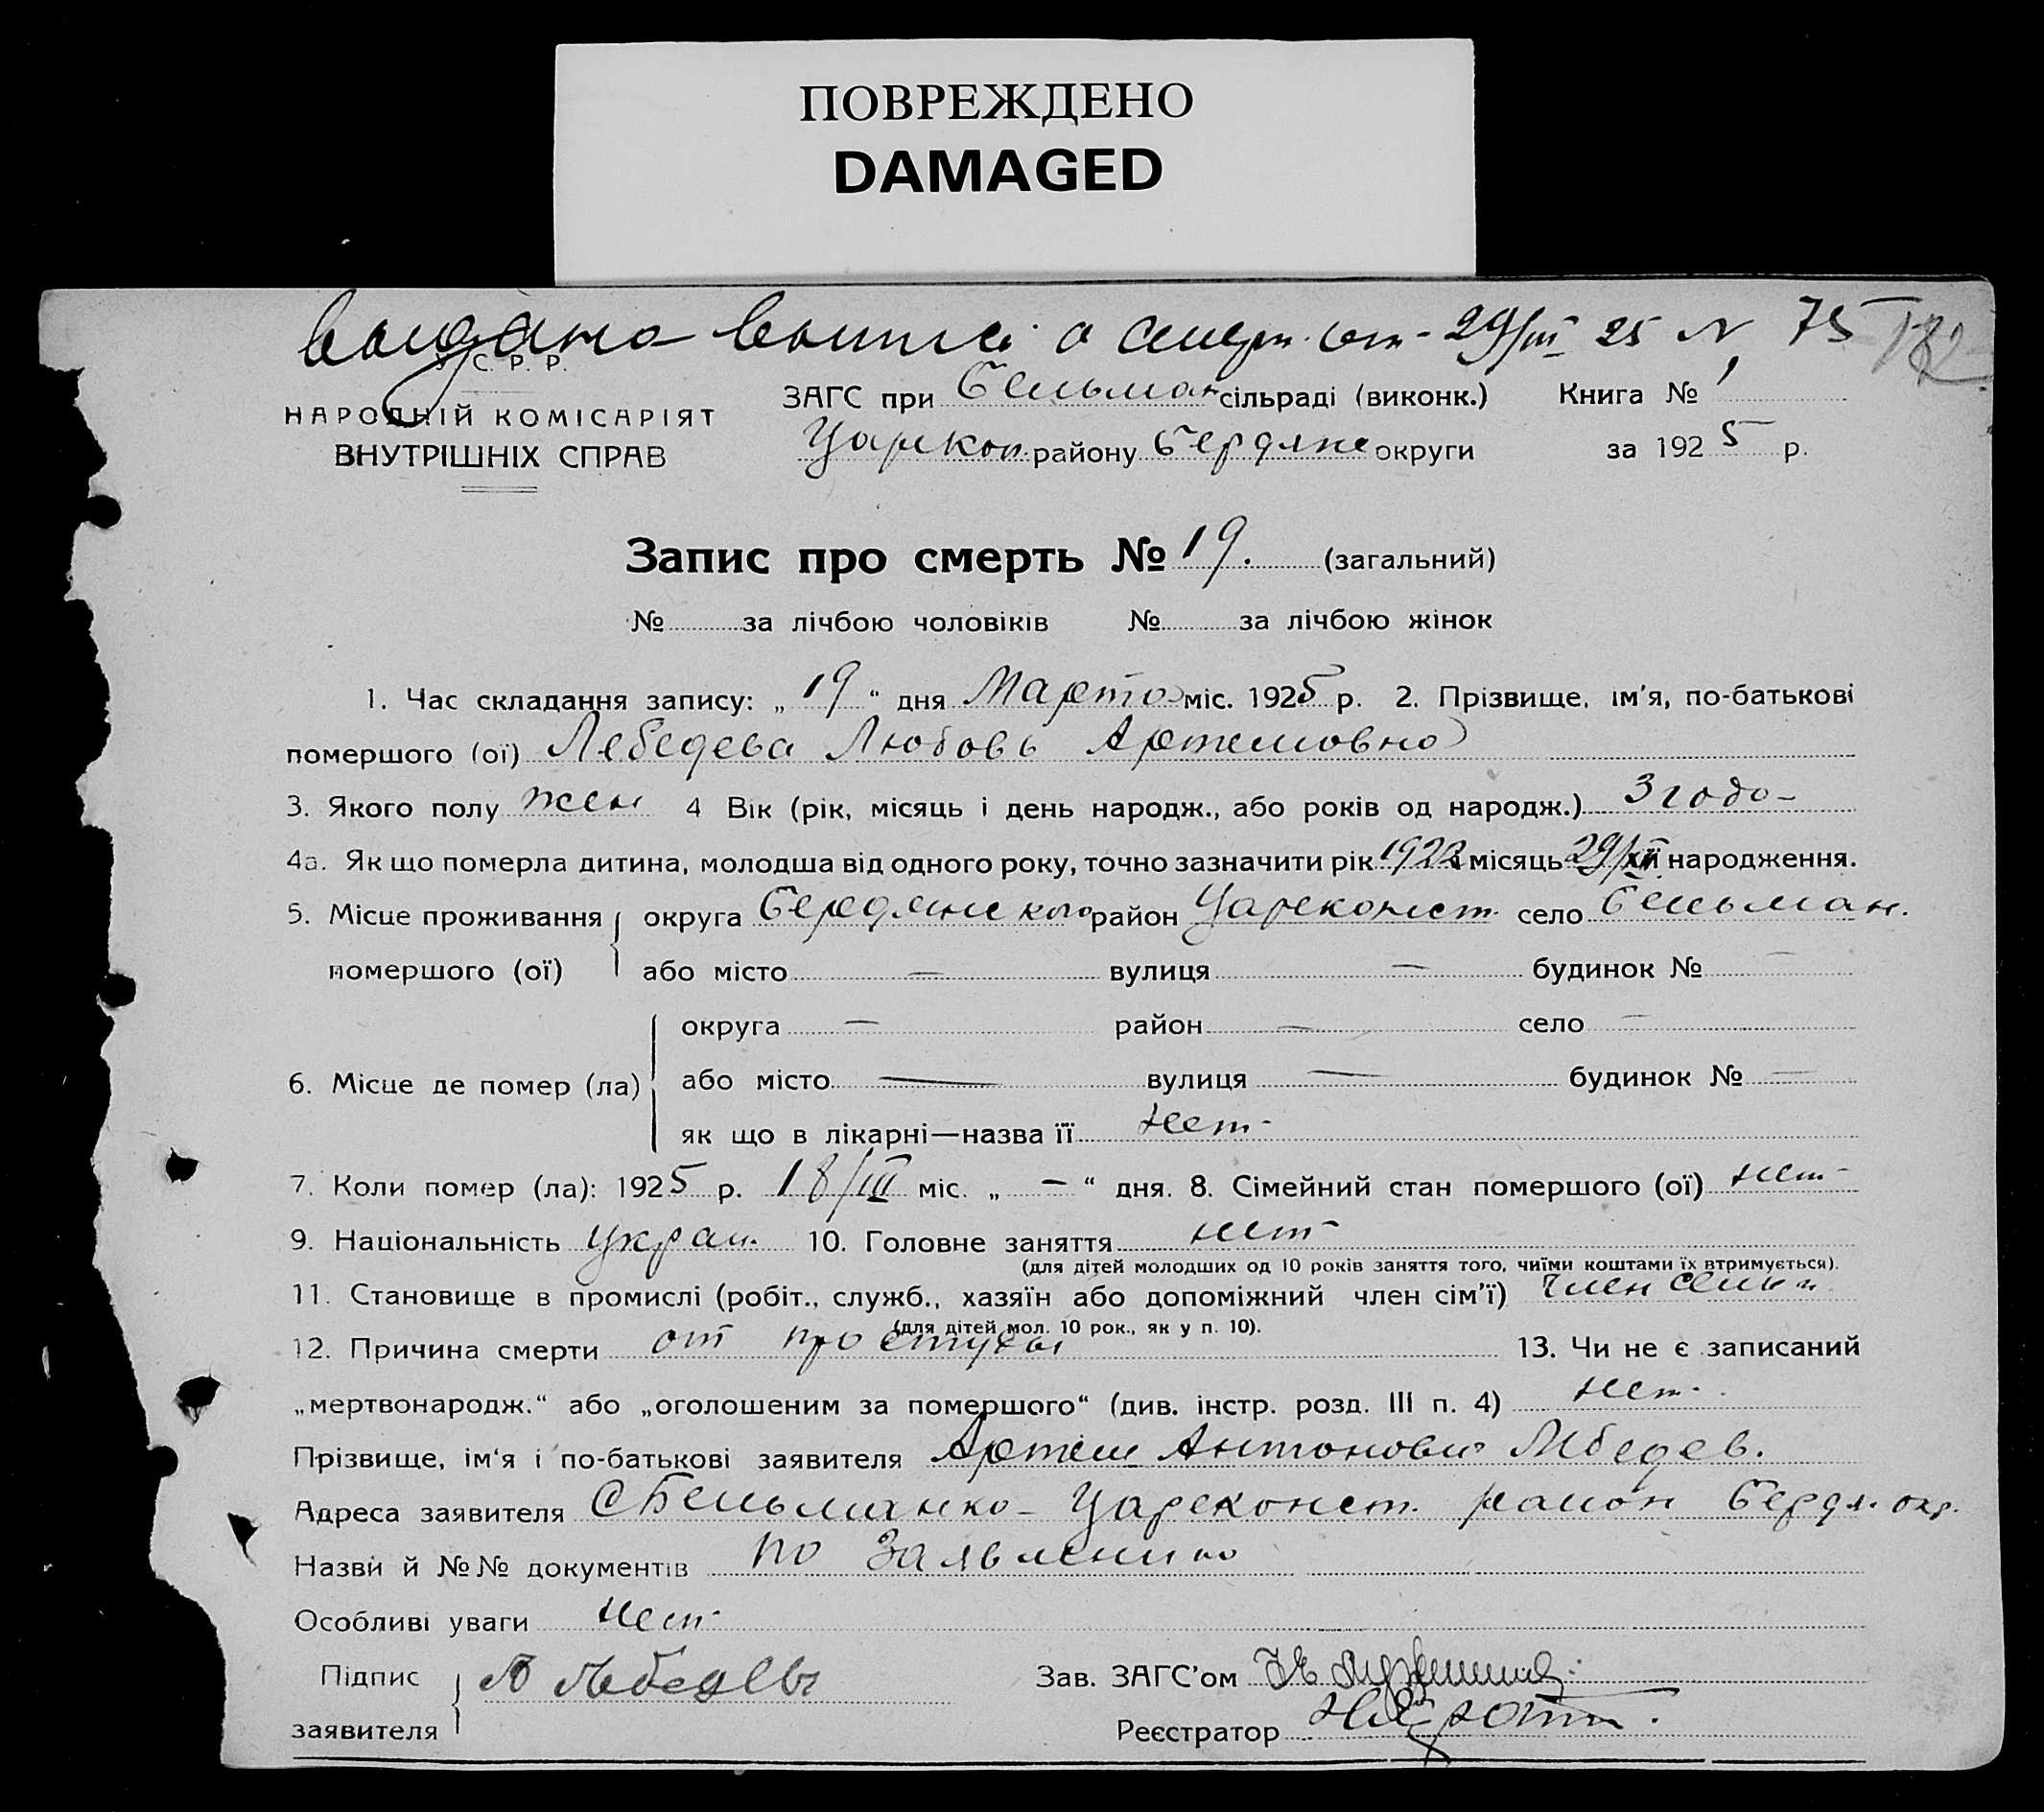 ПОВРЕЖДЕНО
DAMAGED
видано о смерт. от 29/III 25 N 75 182
У. С. Р. Р.
НАРОДНІЙ КОМІСАРІЯТ
ВНУТРІШНІХ СПРАВ
ЗАГС при Бельман сільраді (виконк.) Книга № 1
Царекон. району Бердянс округи за 1925 р.
Запис про смерть № 19. (загальний)
№ за лічбою чоловіків № за лічбою жінок
1. Час складання запису: „ 19 “ дня Марта міс. 1925 р. 2. Прізвище, ім'я, по-батькові
помершого (ої) Лебедева Любовь Артемовна
3. Якого полу жен 4 Вік (рік, місяць і день народж., або років од народж.) 3 года-
4а. Як що померла дитина, молодша від одного року, точно зазначити рік 1922 місяць 29/XII народження.
5. Місце проживання округа Бердянского район Цареконст. село Бельман.
помершого (ої) або місто — вулиця — будинок № —
округа — район — село —
6. Місце де помер (ла) або місто — вулиця — будинок № —
як що в лікарні—назва її нет-
7. Коли помер (ла): 1925 р. 18/III міс. „ — “ дня. 8. Сімейний стан помершого (ої) нет-
9. Національність украин. 10. Головне заняття нет
(для дітей молодших од 10 років заняття того, чиїми коштами їх втримується).
11. Становище в промислі (робіт., служб., хазяїн або допоміжний член сім'ї) член семьи
(для дітей мол. 10 рок., як у п. 10).
12. Причина смерти от простуды 13. Чи не є записаний
„мертвонародж.“ або „оголошеним за помершого“ (див. інстр. розд. III п. 4) нет.
Прізвище, ім'я і по-батькові заявителя Артем Антонович Лебедев.
Адреса заявителя С Бельманка - Цареконст. район Бердя. окр.
Назви й №№ документів по Заявлению
Особливі уваги нет-
Підпис А Лебедев Зав. ЗАГС'ом
заявителя Реєстратор